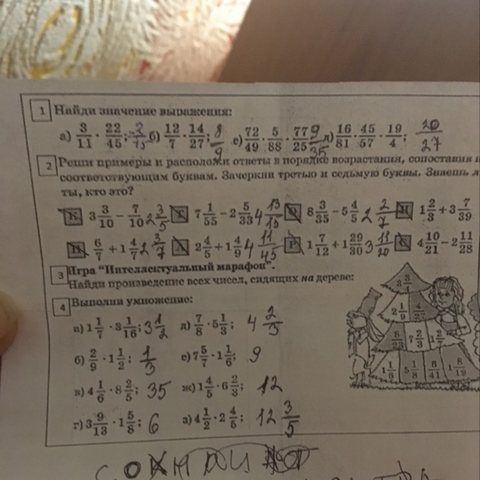 1 Найди значение выражения:
а) 3/11 · 22/45; 2/15 б) 12/7 · 14/27; 8/9 с) 72/49 · 5/88 · 77/25 9/35 д) 16/81 · 45/57 · 19/4; 20/27
2 Реши примеры и расположи ответы в порядке возрастания, сопоставив и
соответствующим буквам. Зачеркни третью и седьмую буквы. Знаешь л
ты, кто это?
3 3/10 − 7/10 2 3/5 7 1/55 − 2 5/33 4 13/15 8 3/35 − 5 4/5 2 2/7 1 2/3 + 3 7/39
6/7 + 1 4/7 2 3/7 2 4/5 + 1 4/9 4 11/45 1 7/12 + 1 29/30 3 11/20 4 10/21 − 2 11/28
3 Игра "Интеллектуальный марафон".
Найди произведение всех чисел, сидящих на дереве:
4 Выполни умножение:
а) 1 1/7 · 3 1/16; 3 1/2 д) 7/8 · 5 1/3; 4 2/3
б) 2/9 · 1 1/2; 1/3 е) 7 5/7 · 1 1/6; 9
в) 4 1/6 · 8 2/5; 35 ж) 1 4/5 · 6 2/3; 12
г) 3 9/13 · 1 5/8; 6 з) 4 1/2 · 2 4/5; 12 3/5